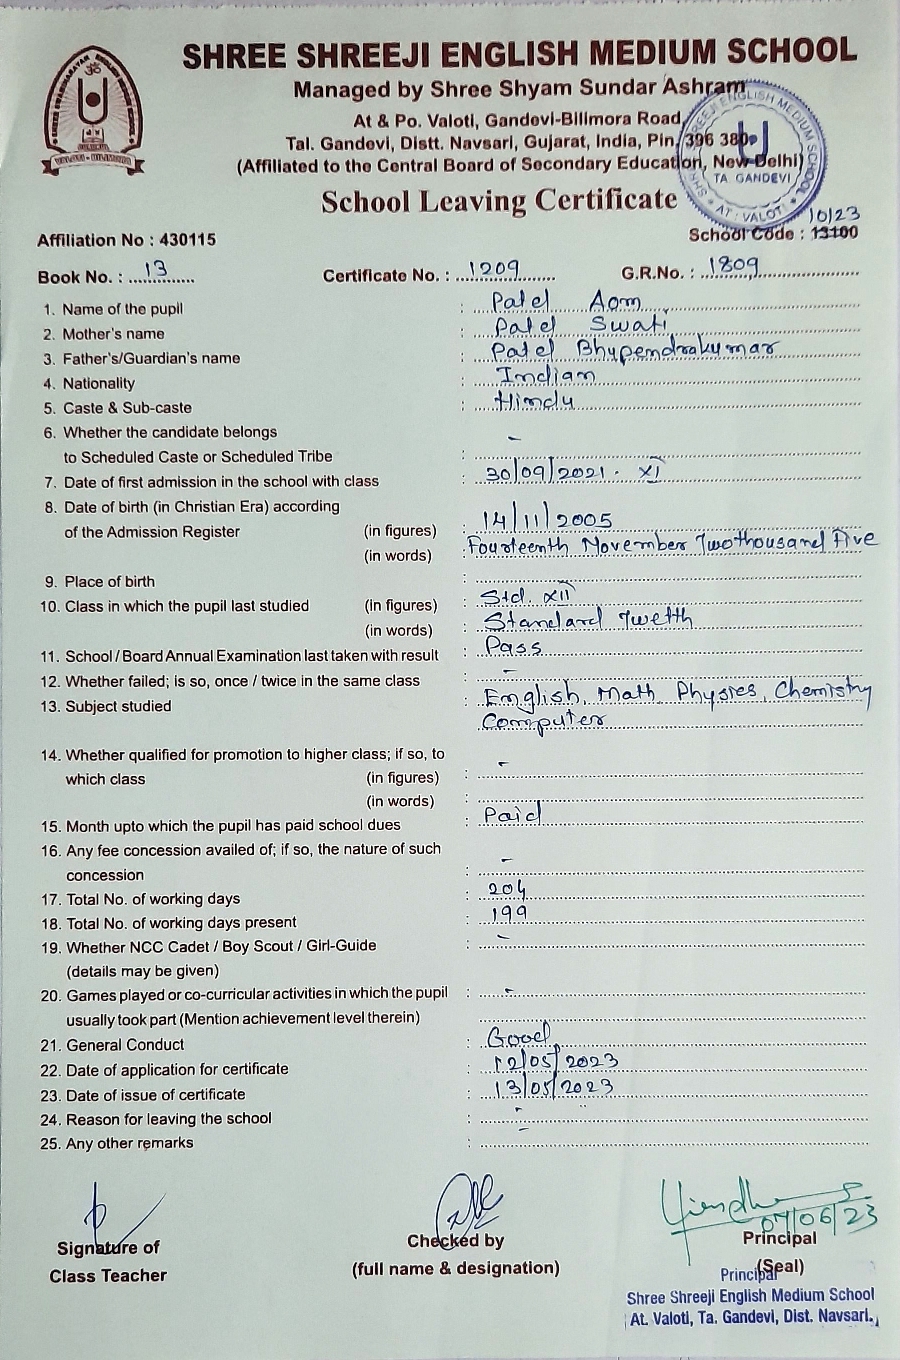 SHREE SHREEJI ENGLISH MEDIUM SCHOOL
Managed by Shree Shyam Sundar Ashram
At & Po. Valoti, Gandevi-Bilimora Road,
Tal. Gandevi, Distt. Navsari, Gujarat, India, Pin. 396 380
(Affiliated to the Central Board of Secondary Education, New Delhi)
VALOTI - BILIMORA
SHREE SHREEJI ENGLISH MEDIUM SCHOOL
TA GANDEVI
AT : VALOTI
School Leaving Certificate
10/23
Affiliation No : 430115 School Code : 13100
Book No. : 13 Certificate No. : 1209 G.R.No. : 1809
1. Name of the pupil : Patel Aom
2. Mother's name : Patel Swati
3. Father's/Guardian's name : Patel Bhupendrakumar
4. Nationality : Indian
5. Caste & Sub-caste : Hindu
6. Whether the candidate belongs -
to Scheduled Caste or Scheduled Tribe :
7. Date of first admission in the school with class : 30/09/2021. XI
8. Date of birth (in Christian Era) according
of the Admission Register (in figures) : 14/11/2005
(in words) : Fourteenth November Twothousand Five
9. Place of birth :
10. Class in which the pupil last studied (In figures) : Std. XII
(in words) : Standard Twelth
11. School / Board Annual Examination last taken with result : Pass
12. Whether failed; is so, once / twice in the same class : -
13. Subject studied : English, Math, Physics, Chemistry
: Computer
14. Whether qualified for promotion to higher class; if so, to
which class (in figures) : -
(in words) :
15. Month upto which the pupil has paid school dues : Paid
16. Any fee concession availed of; if so, the nature of such
concession : -
17. Total No. of working days : 204
18. Total No. of working days present : 199
19. Whether NCC Cadet / Boy Scout / Girl-Guide : -
(details may be given)
20. Games played or co-curricular activities in which the pupil : -
usually took part (Mention achievement level therein)
21. General Conduct : Good
22. Date of application for certificate : 12/05/2023
23. Date of issue of certificate : 13/05/2023
24. Reason for leaving the school : -
25. Any other remarks : -
07/06/23
Signature of Checked by Principal
Class Teacher (full name & designation) (Seal)
Principal
Shree Shreeji English Medium School
At. Valoti, Ta. Gandevi, Dist. Navsari.